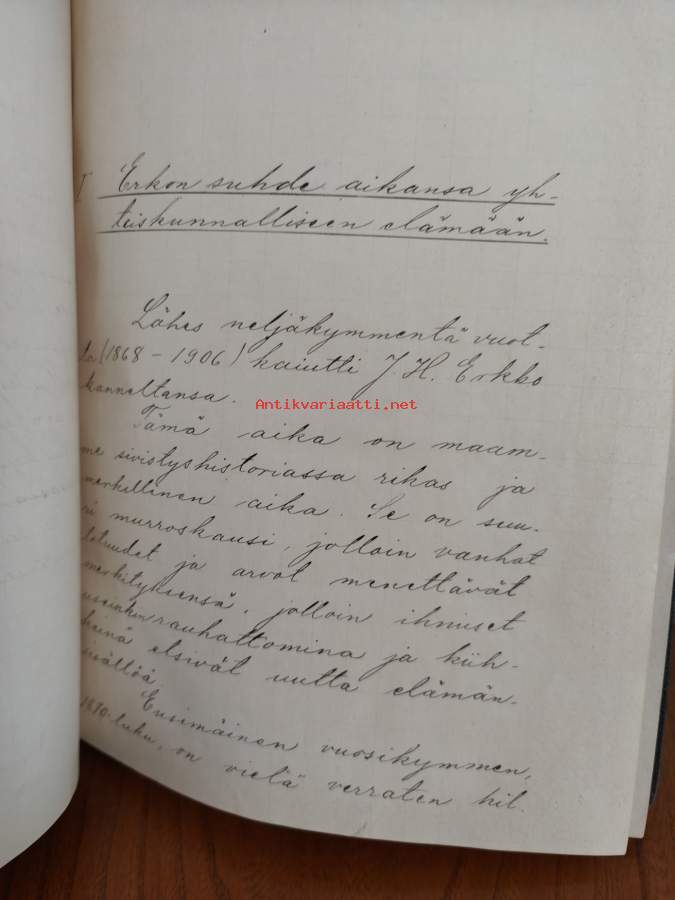 I Erkon suhde aikansa yh-
teiskunnalliseen elämään.
Lähes neljäkymmentä vuot-
ta (1868 - 1906) kaiutti J. H. Erkko
kanneltansa.
Antikvariaatti.net
Tämä aika on maam-
me sivistyshistoriassa rikas ja
merkillinen aika. Se on suu-
ri murroskausi, jolloin vanhat
totuudet ja arvot menettävät
merkityksensä, jolloin ihmiset
useinkin rauhattomina ja kiih-
keinä etsivät uutta elämän-
sisältöä.
Ensimäinen vuosikymmen,
1870-luku, on vielä verraten hil-